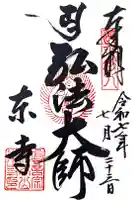 奉拝
令和七年
七月二十三日
弘法大師
東寺